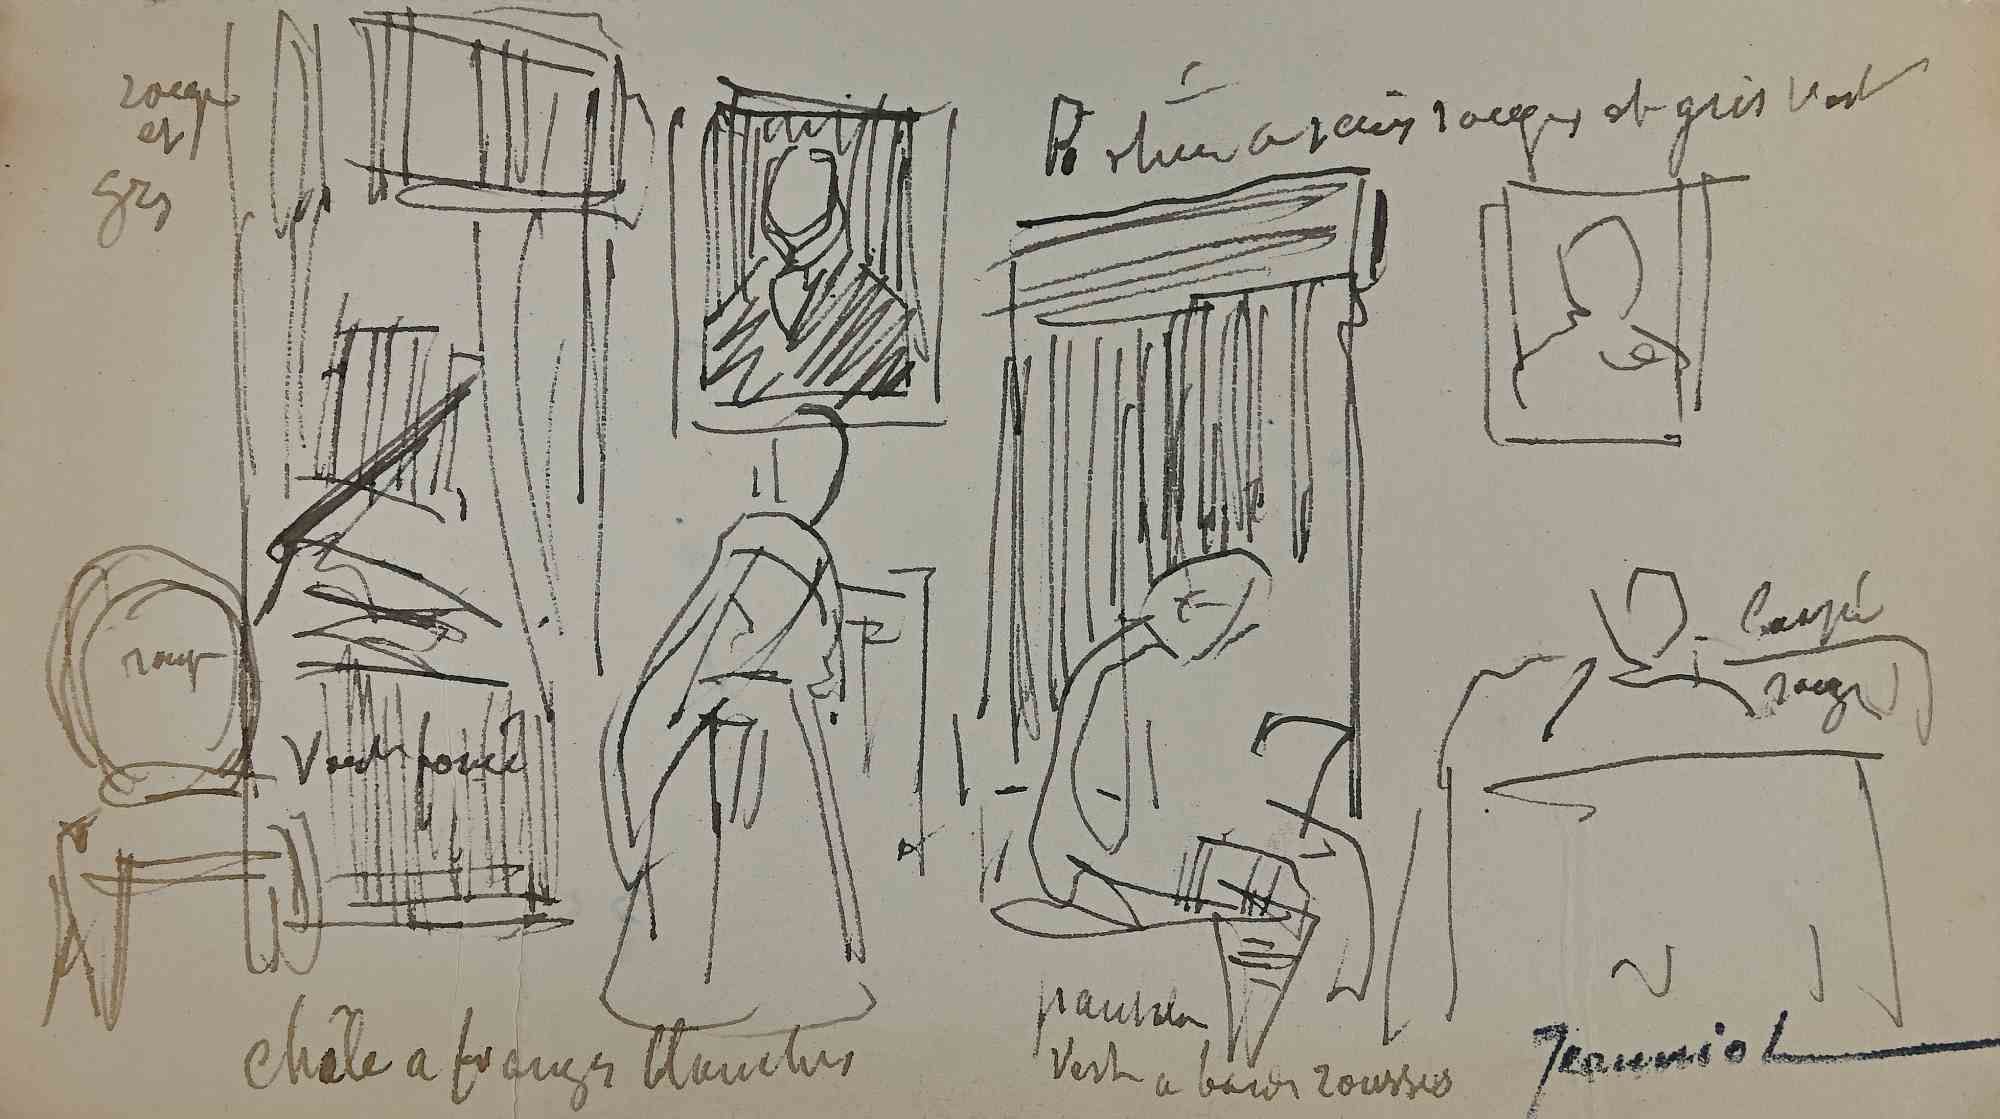 rouge
et
gris
Portière a raies rouges et gris vert
Canapé
rouge
rouge
Vert foncé
châle a franges blanches
vert a bandes rousses
Jeanniot